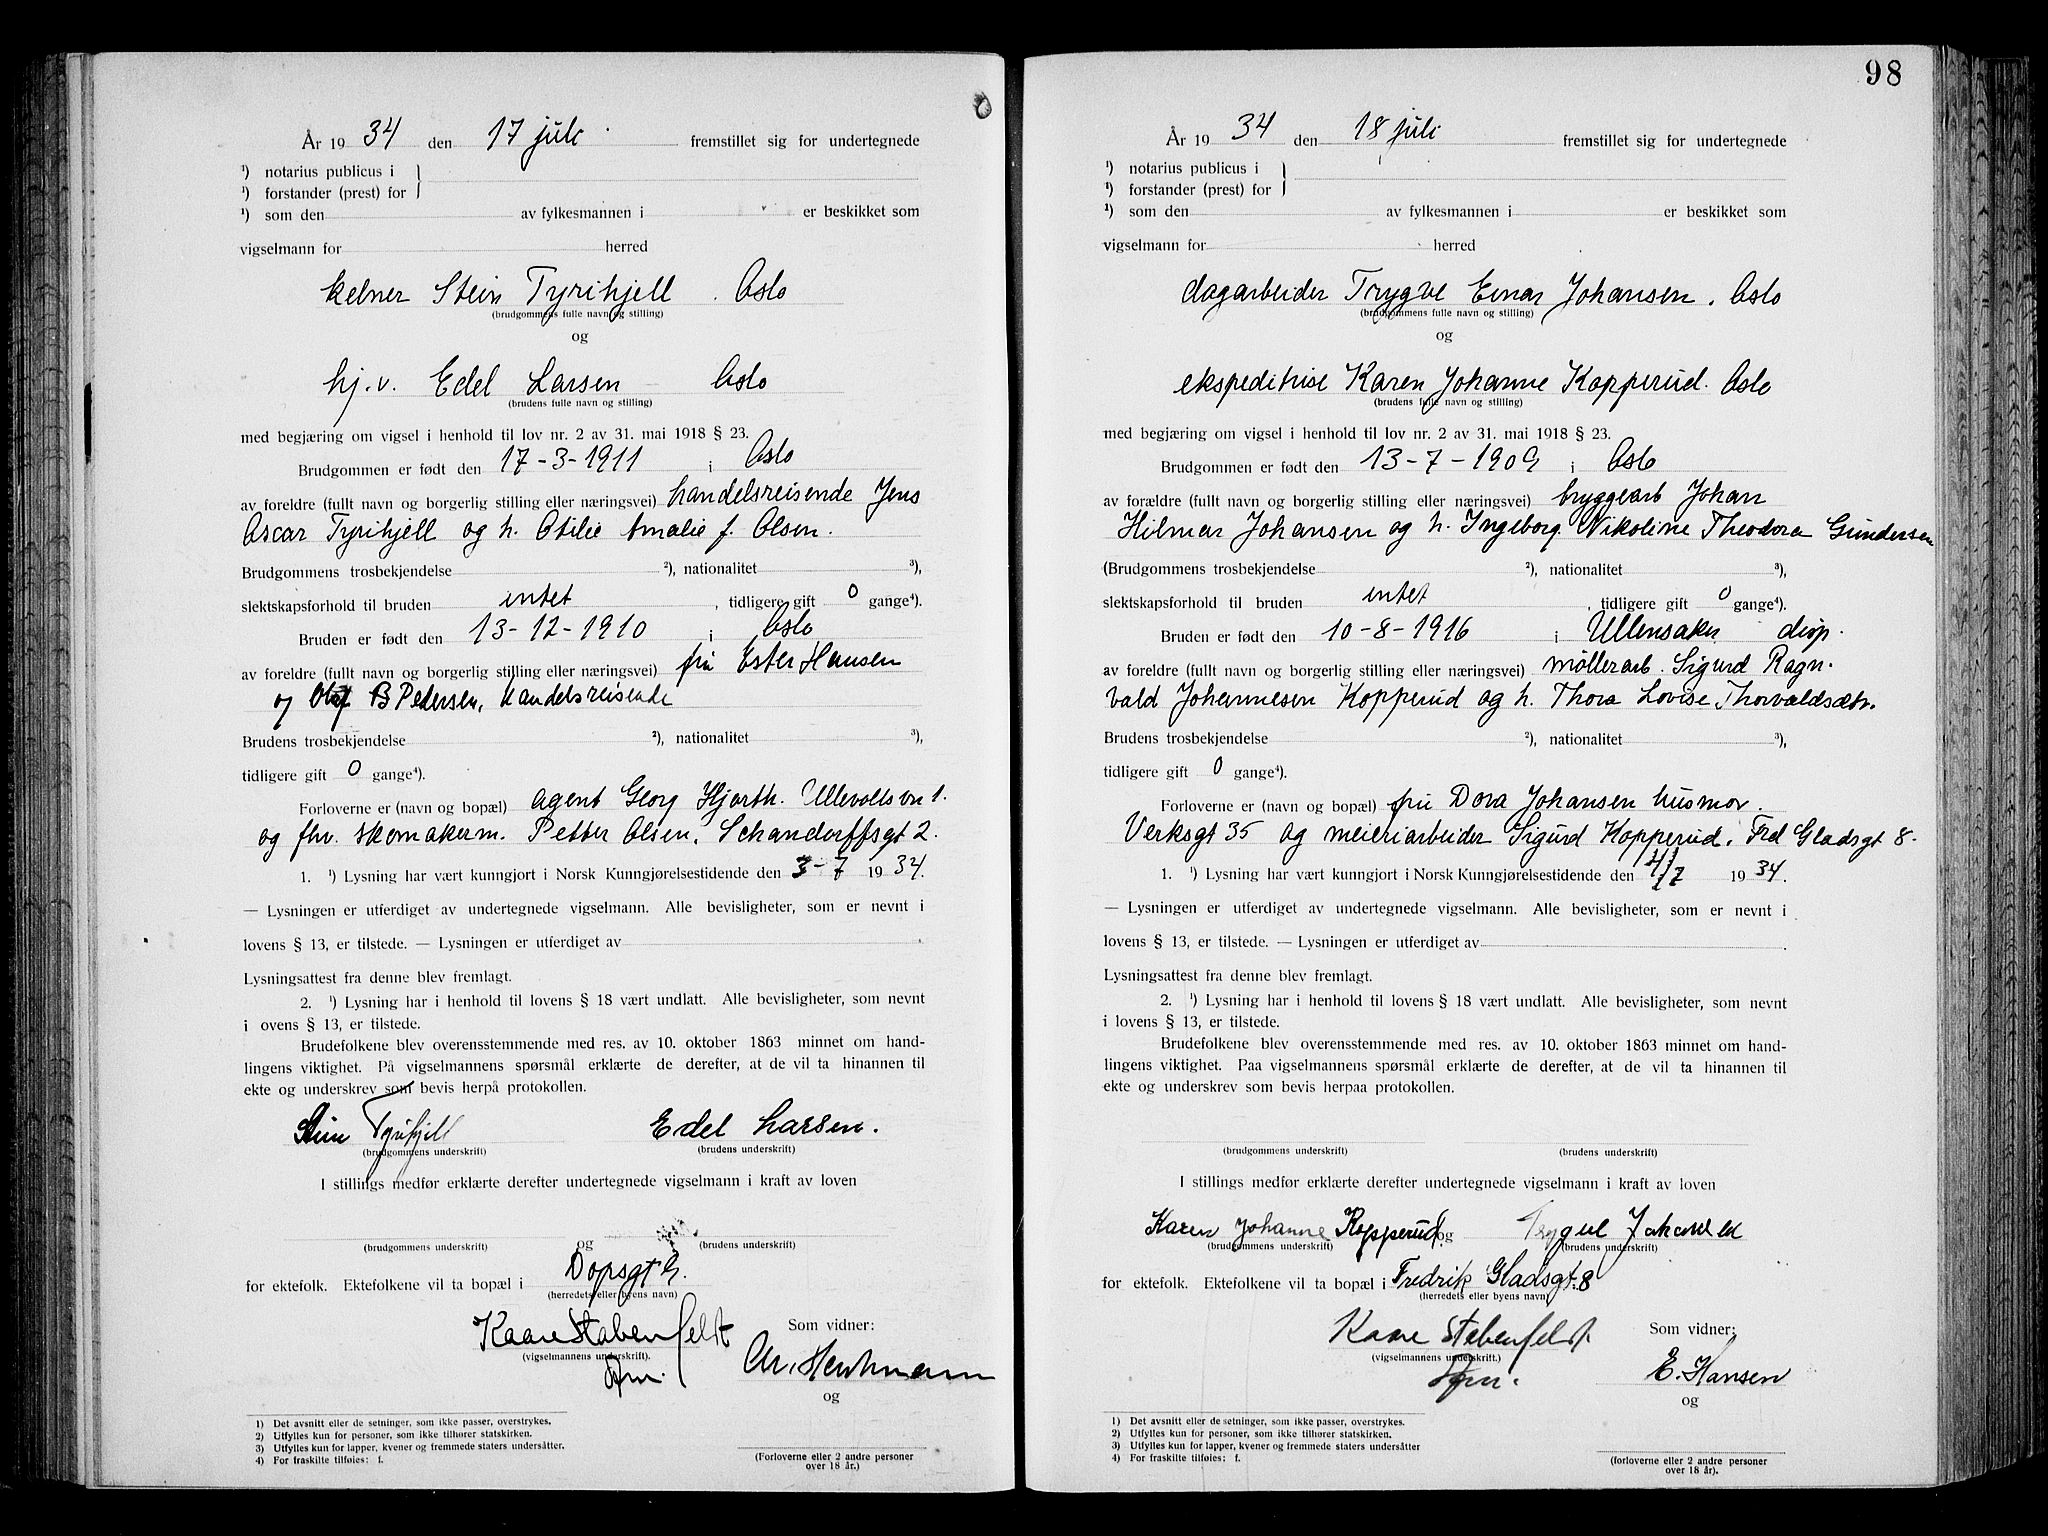 År 19 34 den 17 juli fremstillet sig for undertegnede
¹) notarius publicus i
¹) forstander (prest) for
¹) som den av fylkesmannen i er beskikket som
vigselmann for herred
kelner Stein Tyrihjell. Oslo
(brudgommens fulle navn og stilling)
og
hj.v. Edel Larsen Oslo
(brudens fulle navn og stilling)
med begjæring om vigsel i henhold til lov nr. 2 av 31. mai 1918 § 23.
Brudgommen er født den 17-3-1911 i Oslo
av foreldre (fullt navn og borgerlig stilling eller næringsvei) handelsreisende Jens
Oscar Tyrihjell og h. Otilie Amalie f. Olsen.
Brudgommens trosbekjendelse ²), nationalitet ³),
slektskapsforhold til bruden intet, tidligere gift 0 gange⁴).
Bruden er født den 13-12-1910 i Oslo
av foreldre (fullt navn og borgerlig stilling eller næringsvei) fru Ester Hansen
og Olaf B Pedersen, handelsreisende
Brudens trosbekjendelse ²), nationalitet ³),
tidligere gift 0 gange⁴).
Forloverne er (navn og bopæl) agent Georg Hjorth. Ullevollsvn 1.
og fhv. skomakerm. Petter Olsen. Schandorffsgt 2.
1. ¹) Lysning har vært kunngjort i Norsk Kunngjørelsestidende den 3-7 19 34.
— Lysningen er utferdiget av undertegnede vigselmann. Alle bevisligheter, som er nevnt i
lovens § 13, er tilstede. — Lysningen er utferdiget av
Lysningsattest fra denne blev fremlagt.
2. ¹) Lysning har i henhold til lovens § 18 vært undlatt. Alle bevisligheter, som nevnt
i ovens § 13, er tilstede.
Brudefolkene blev overensstemmende med res. av 10. oktober 1863 minnet om hand-
lingens viktighet. På vigselmannens spørsmål erklærte de derefter, at de vil ta hinannen til
ekte og underskrev som bevis herpå protokollen.
Stein Tyrihjell Edel Larsen.
(brudgommens underskrift) (brudens underskrift)
I stillings medfør erklærte derefter undertegnede vigselmann i kraft av loven
og
(brudgommens underskrift) (brudens underskrift)
for ektefolk. Ektefolkene vil ta bopæl i Dopsgt
(herredets eller byens navn)
Kaare Stabenfeldt Som vidner:
(vigselmannens underskrift).
og
1) Det avsnitt eller de setninger, som ikke passer, overstrykes.
2) Utfylles kun for personer, som ikke tilhører statskirken.
3) Utfylles kun for lapper, kvener og fremmede staters undersåtter.
4) For fraskilte tilføies: f.
(Forloverne eller 2 andre personer
over 18 år.)
98
År 19 34 den 18 juli fremstillet sig for undertegnede
¹) notarius publicus i
¹) forstander (prest) for
¹) som den av fylkesmannen i er beskikket som
vigselmann for herred
dagarbeider Trygve Einar Johansen. Oslo
(brudgommens fulle navn og stilling)
og
ekspeditrise Karen Johanne Kopperud. Oslo
(brudens fulle navn og stilling)
med begjæring om vigsel i henhold til lov nr. 2 av 31. mai 1918 § 23.
Brudgommen er født den 13-7-1909 i Oslo
av forældre (fullt navn og borgerlig stilling eller næringsvei) bryggearb Johan
Hilmar Johansen og h. Ingeborg Nikoline Theodora Gundersen
(Brudgommens trosbekjendelse ²), nationalitet ³),
slektskapsforhold til bruden intet, tidligere gift 0 gange⁴).
Bruden er født den 10-8-1916 i Ullensaker disp.
av foreldre (fullt navn og borgerlig stilling eller næringsvei) møllerarb. Sigurd Ragn-
vald Johannesen Kopperud og h. Thora Lovise Thorvaldsdtr.
Brudens trosbekjendelse ²), nationalitet ³),
tidligere gift 0 gange⁴).
Forloverne er (navn og bopæl) fru Dora Johansen husmor.
Verksgt 35 og meieriarbeider Sigurd Kopperud. Fred Gladsgt 8.
1. ¹) Lysning har vært kunngjort i Norsk Kunngjørelsestidende den 4/7 19 34.
— Lysningen er utferdiget av undertegnede vigselmann. Alle bevisligheter, som er nevnt i
lovens § 13, er tilstede. — Lysningen er utferdiget av
Lysningsattest fra denne blev fremlagt.
2. ¹) Lysning har i henhold til lovens § 18 vært undlatt. Alle bevisligheter, som nevnt
i lovens § 13, er tilstede.
Brudefolkene blev overensstemmende med res. av 10. oktober 1863 minnet om hand-
lingens viktighet. Paa vigselmannens spørsmål erklærte de derefter, at de vil ta hinannen til
ekte og underskrev som bevis herpaa protokollen.
(brudgommens underskrift) (brudens underskrift)
I stillings medfør erklærte derefter undertegnede vigselmann i kraft av loven
Karen Johanne Kopperud og Trygve Johansen
(brudgommens underskrift) (brudens underskrift)
for ektefolk. Ektefolkene vil ta bopæl i Fredrik Gladsgt. 8
(herredets eller byens navn)
Kaare Stabenfeldt Som vidner:
(vigselmannens underskrift.)
E. Hansen
og
1) Det avsnitt eller de setninger, som ikke passer, overstrykes.
2) Utfylles kun for personer, som ikke tilhører statskirken.
3) Utfylles kun for lapper, kvener og fremmede staters undersåtter
4) For fraskilte tilføies: f.
(forloverne eller 2 andre personer
over 18 år).